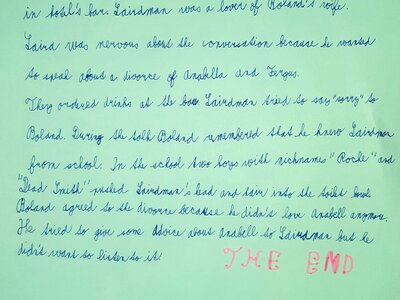 in hotel's bar. Lairdman was a lover of Boland's wife.
Laird was nervous about the conversation because he wanted
to speak about a divorce of Anabella and Fergus.
They ordered drinks at the bar Lairdman tried to say "sorry" to
Boland. During the talk Boland remembered that he knew Lairdman
from school. In the school two boys with nicknames "Roche" and
"Dead Smith" pushed Lairdman's head and hair into the toilet bowl
Boland agreed to the divorce because he didn't love Anabell anymore.
He tried to give some advice about Anabell to Lairdman but he
didn't want to listen to it.
THE EMD